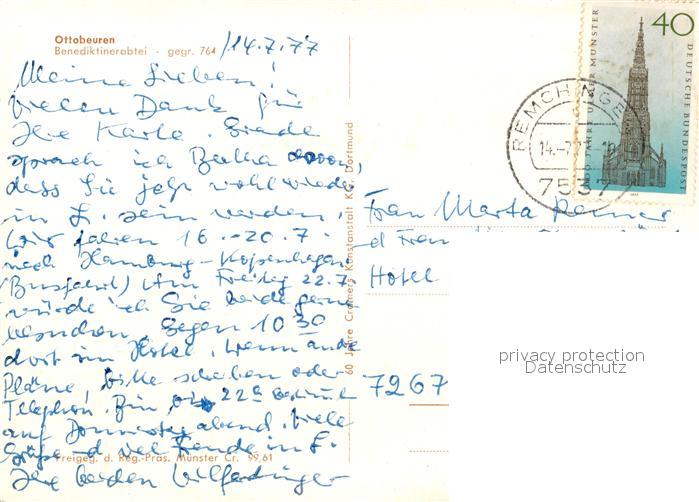 Ottobeuren
Benediktinerabtei - gegr. 764
14.7.77
Meine Lieben!
Vielen Dank für
Ihre Karte. Grade
sprach ich davon,
dass Sie jetzt wohl wieder
in F. sein werden.
Wir fahren 16.-20.7.
nach Hamburg-Kopenhagen
(Busfahrt) Am Freitag 22.7.
würde ich Sie beide gerne
besuchen. Gegen 10 30
dort im Hotel. Wenn andre
Pläne, bitte schreiben oder
Telephon! Bin
auf Donnerstag abend. Viele
Grüße d viel Freude in F.
Ihre beiden
Freigeg. d. Reg.-Präs. Münster Cr. 99,61
60 Jahre Cramers Kunstanstalt KG, Dortmund
40
JAHRE ULMER MÜNSTER
DEUTSCHE BUNDESPOST
REMCHINGEN
14.-7.77
7537
Frau Marta
d Frau
Hotel
7267
privacy protection
Datenschutz